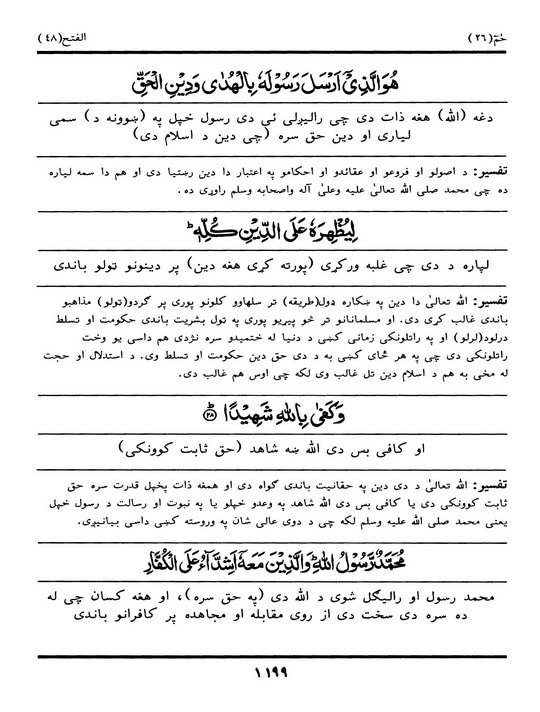 حٰمٓ(٢٦)
الفتح(٤٨)
هُوَالَّذِيْٓ اَرْسَلَ رَسُوْلَهٗ بِالْهُدٰى وَدِيْنِ الْحَقِّ
دغه (الله) هغه ذات دی چی رالیږلی ئی دی رسول خپل په (ښوونه د) سمی
لیاری او دین حق سره (چی دین د اسلام دی)
تفسیر: د اصولو او فروعو او عقائدو او احکامو په اعتبار دا دین رښتیا دی او هم دا سمه لیاره
ده چی محمد صلی الله تعالیٰ علیه وعلیٰ آله واصحابه وسلم راوړی ده.
لِيُظْهِرَهٗ عَلَى الدِّيْنِ كُلِّهٖ ؕ
لپاره د دی چی غلبه ورکړی (پورته کړی هغه دین) پر دینونو ټولو باندی
تفسیر: الله تعالیٰ دا دین په ښکاره ډول(طریقه) تر سلهاوو کلونو پوری پر گردو(ټولو) مذاهبو
باندی غالب کړی دی. او مسلمانانو تر څو پیړیو پوری په ټول بشریت باندی حکومت او تسلط
درلود(لرلو) او په راتلونکی زمانی کښی د دنیا له ختمیدو سره نژدی هم داسی یو وخت
راتلونکی دی چی په هر ځای کښی به د دی حق دین حکومت او تسلط وی. د استدلال او حجت
له مخی به هم د اسلام دین تل غالب وی لکه چی اوس هم غالب دی.
وَكَفٰى بِاللّٰهِ شَهِيْدًا ؕ ﴿٢٨﴾
او کافی بس دی الله ښه شاهد (حق ثابت کوونکی)
تفسیر: الله تعالیٰ د دی دین په حقانیت باندی گواه دی او همغه ذات پخپل قدرت سره حق
ثابت کوونکی دی یا کافی بس دی الله شاهد په وعدو خپلو یا په نبوت او رسالت د رسول خپل
یعنی محمد صلی الله علیه وسلم لکه چی د دوی عالی شان په وروسته کښی داسی بیانیږی.
مُحَمَّدٌ رَّسُوْلُ اللّٰهِ ؕ وَالَّذِيْنَ مَعَهٗٓ اَشِدَّآءُ عَلَى الْكُفَّارِ
محمد رسول او رالیگل شوی د الله دی (په حق سره)، او هغه کسان چی له
ده سره دی سخت دی از روی مقابله او مجاهده پر کافرانو باندی
١١٩٩